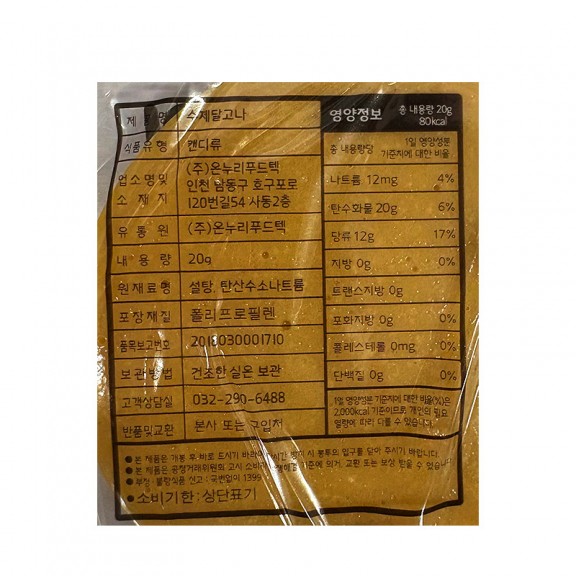 제품명 수제달고나
식품유형 캔디류
업소명및 소재지 (주)온누리푸드텍
인천 남동구 호구포로
120번길54 사동2층
유통원 (주)온누리푸드텍
내용량 20g
원재료명 설탕, 탄산수소나트륨
포장재질 폴리프로필렌
품목보고번호 2018030001710
보관방법 건조한 실온 보관
고객상담실 032-290-6488
반품및교환 본사 또는 구입처
영양정보 총 내용량 20g
80kcal
총 내용량당 1일 영양성분
기준치에 대한 비율
나트륨 12mg 4%
탄수화물 20g 6%
당류 12g 17%
지방 0g 0%
트랜스지방 0g
포화지방 0g 0%
콜레스테롤 0mg 0%
단백질 0g 0%
1일 영양성분 기준치에 대한 비율(%)은
2,000kcal 기준이므로 개인의 필요
열량에 따라 다를 수 있습니다.
● 본 제품은 개봉 후 바로 드시기 바라며 시간 방치 시 봉투의 입구를 닫아 주시기 바랍니다.
● 본 제품은 공정거래위원회 고시 소비자 기준에 의거, 교환 또는 보상 받을 수 있습니다
● 부정·불량식품 신고 : 국번없이 1399
● 소비기한 : 상단표기